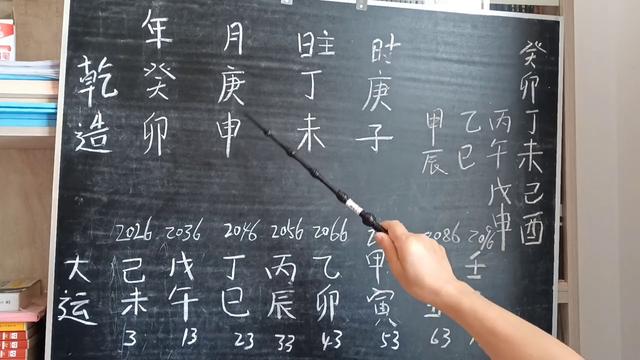 年 月 日主 时
乾 癸 庚 丁 庚
造 卯 申 未 子
癸卯丁未己酉
丙午戊申
乙巳
甲辰
2026 2036 2046 2056 2066 2086 2096
大 己 戊 丁 丙 乙 甲 壬
运 未 午 巳 辰 卯 寅
3 13 23 33 43 53 63